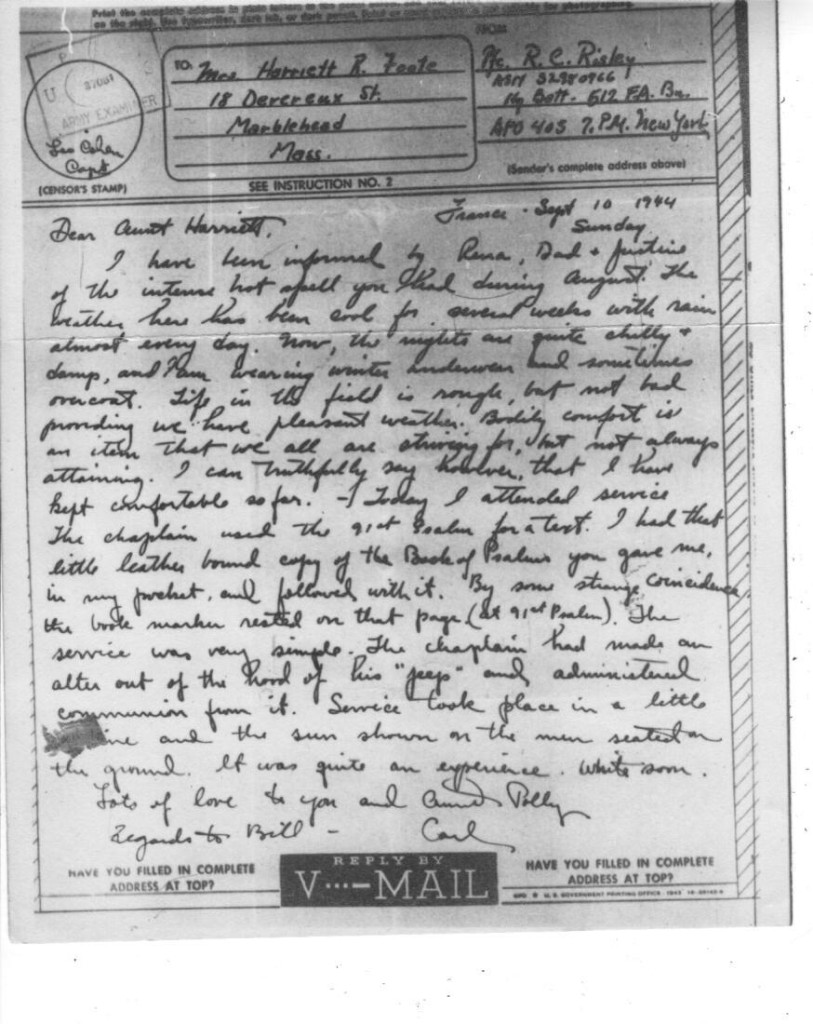 Print the complete address in plain letters in the panel
on the right. Use typewriter, dark ink, or dark pencil.
TO:
Mrs Harriett R. Foote
18 Devereux St.
Marblehead
Mass.
FROM
Pfc. R. C. Risley
ASN 32980966
Hq Batt. 512 F.A. Bn.
APO 403 % P.M. New York
(Sender's complete address above)
U S
37081
ARMY EXAMINER
Capt
(CENSOR'S STAMP)
SEE INSTRUCTION NO. 2
France - Sept 10 1944
Sunday
Dear Aunt Harriett,
I have been informed by Rena, Dad + Justine
of the intense hot spell you had during August. The
weather here has been cool for several weeks with rain
almost every day. Now, the nights are quite chilly +
damp, and I am wearing winter underwear and sometimes
overcoat. Life in the field is rough, but not bad
providing we have pleasant weather. Bodily comfort is
an item that we all are striving for, but not always
attaining. I can truthfully say however, that I have
kept comfortable so far. - Today I attended service
The chaplain used the 91st Psalm for a text. I had that
little leather bound copy of the Book of Psalms you gave me,
in my pocket, and followed with it. By some strange coincidence
the book marker rested on that page (at 91st Psalm). The
service was very simple. The chaplain had made an
alter out of the hood of his "jeep" and administered
communion from it. Service took place in a little
and the sun shown on the men seated on
the ground. It was quite an experience. Write soon.
Lots of love to you and Aunt Polly
Regards to Bill - Carl
HAVE YOU FILLED IN COMPLETE
ADDRESS AT TOP?
REPLY BY
V···—MAIL
HAVE YOU FILLED IN COMPLETE
ADDRESS AT TOP?
U. S. GOVERNMENT PRINTING OFFICE : 1943